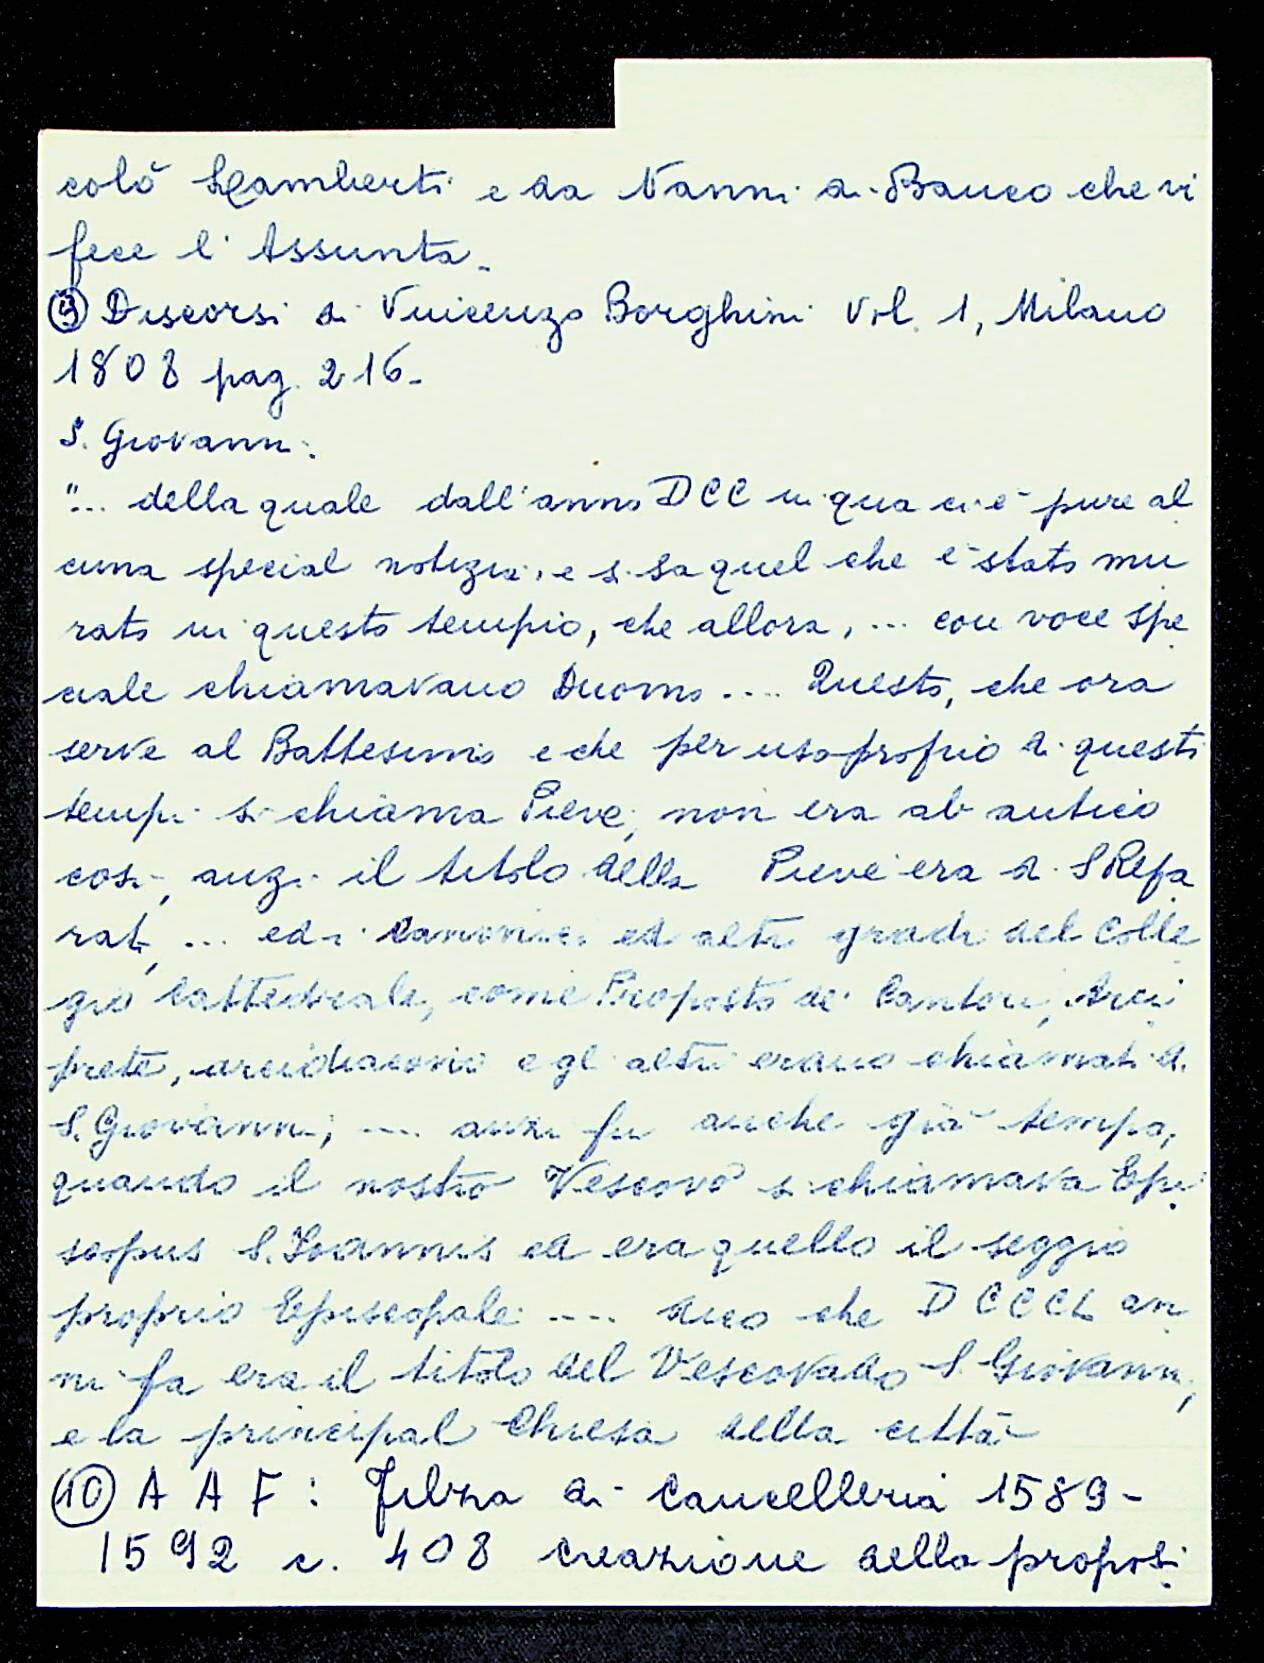 colò Lamberti e da Nanni di Banco che vi
fece l'Assunta.
⑨ Discorsi di Vincenzo Borghini Vol. 1, Milano
1808 pag. 216-
S. Giovanni:
"... della quale dall'anno DCC in qua ci è pure al
cuna special notizia, e si sa quel che è stato mu
rato in questo tempio, che allora, ... con voce spe
ciale chiamavano Duomo .... Questo, che ora
serve al Battesimo e che per uso proprio di questi
tempi si chiama Pieve, non era ab antico
così, anzi il titolo della Pieve era di S Repa
rata, ... ed i Canonici ed altri gradi del Colle
gio Cattedrale, come Proposto de' Cantori, Arci
prete, arcidiacono e gli altri erano chiamati di
S. Giovanni; .... anzi fu anche già tempo,
quando il nostro Vescovo si chiamava Epi
scopus S. Ioannis ed era quello il seggio
proprio Episcopale .... dico che DCCCL an
ni fa era il titolo del Vescovado S. Giovanni,
e la principal Chiesa della città
⑩ A A F: Filza di Cancelleria 1589-
1592 c. 408 creazione della proposi